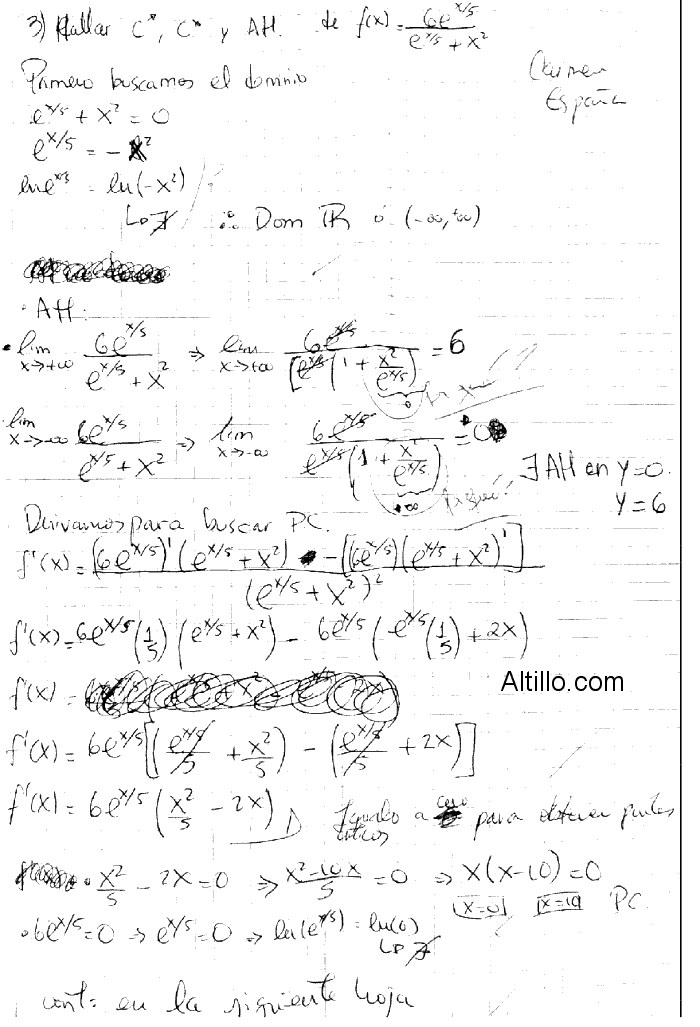 3) Hallar C⁺, C⁻ y AH. de f(x) = 6e^(x/5) / (e^(x/5) + x²)
Primero buscamos el dominio
Carmen
España
e^(x/5) + x² = 0
e^(x/5) = -x²
ln e^(x/5) = ln(-x²)
↳ ∄ ∴ Dom ℝ ó (-∞, +∞)
· AH:
· lim x→+∞ 6e^(x/5) / (e^(x/5) + x²) ⇒ lim x→+∞ 6e^(x/5) / [e^(x/5) (1 + x²/e^(x/5))] = 6
0
lim x→-∞ 6e^(x/5) / (e^(x/5) + x²) ⇒ lim x→-∞ 6e^(x/5) / (e^(x/5) (1 + x²/e^(x/5))) = 0
+∞
∃ AH en y=0.
y=6
Derivamos para buscar PC.
f'(x) = [(6e^(x/5))' (e^(x/5) + x²) - [(6e^(x/5)) (e^(x/5) + x²)']] / (e^(x/5) + x²)²
f'(x) = 6e^(x/5) (1/5) (e^(x/5) + x²) - 6e^(x/5) (e^(x/5) (1/5) + 2x)
f'(x) =
Altillo.com
f'(x) = 6e^(x/5) [(e^(x/5)/5 + x²/5) - (e^(x/5)/5 + 2x)]
f'(x) = 6e^(x/5) (x²/5 - 2x) Igualo a cero para obtener puntos
críticos
· x²/5 - 2x = 0 ⇒ (x² - 10x)/5 = 0 ⇒ x(x-10) = 0
x=0 x=10 PC
· 6e^(x/5) = 0 ⇒ e^(x/5) = 0 ⇒ ln(e^(x/5)) = ln(0)
↳ ∄
cont: en la siguiente hoja